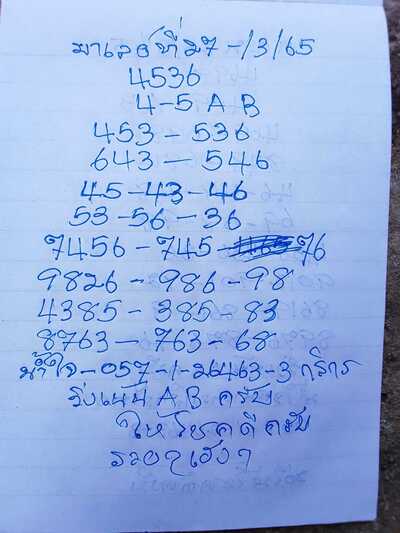 มาเลย์ที่ 27-/3/65
4536
4-5 A B
453-536
643-546
45-43-46
53-56-36
7456-745 76
9826-986-98
4385-385-83
8763-763-68
น้ำใจ-057-1-26463-3 กสิกร
วิ่งเน้น A B ครับ
ให้โชคดีครับ
รวยๆเฮงๆ